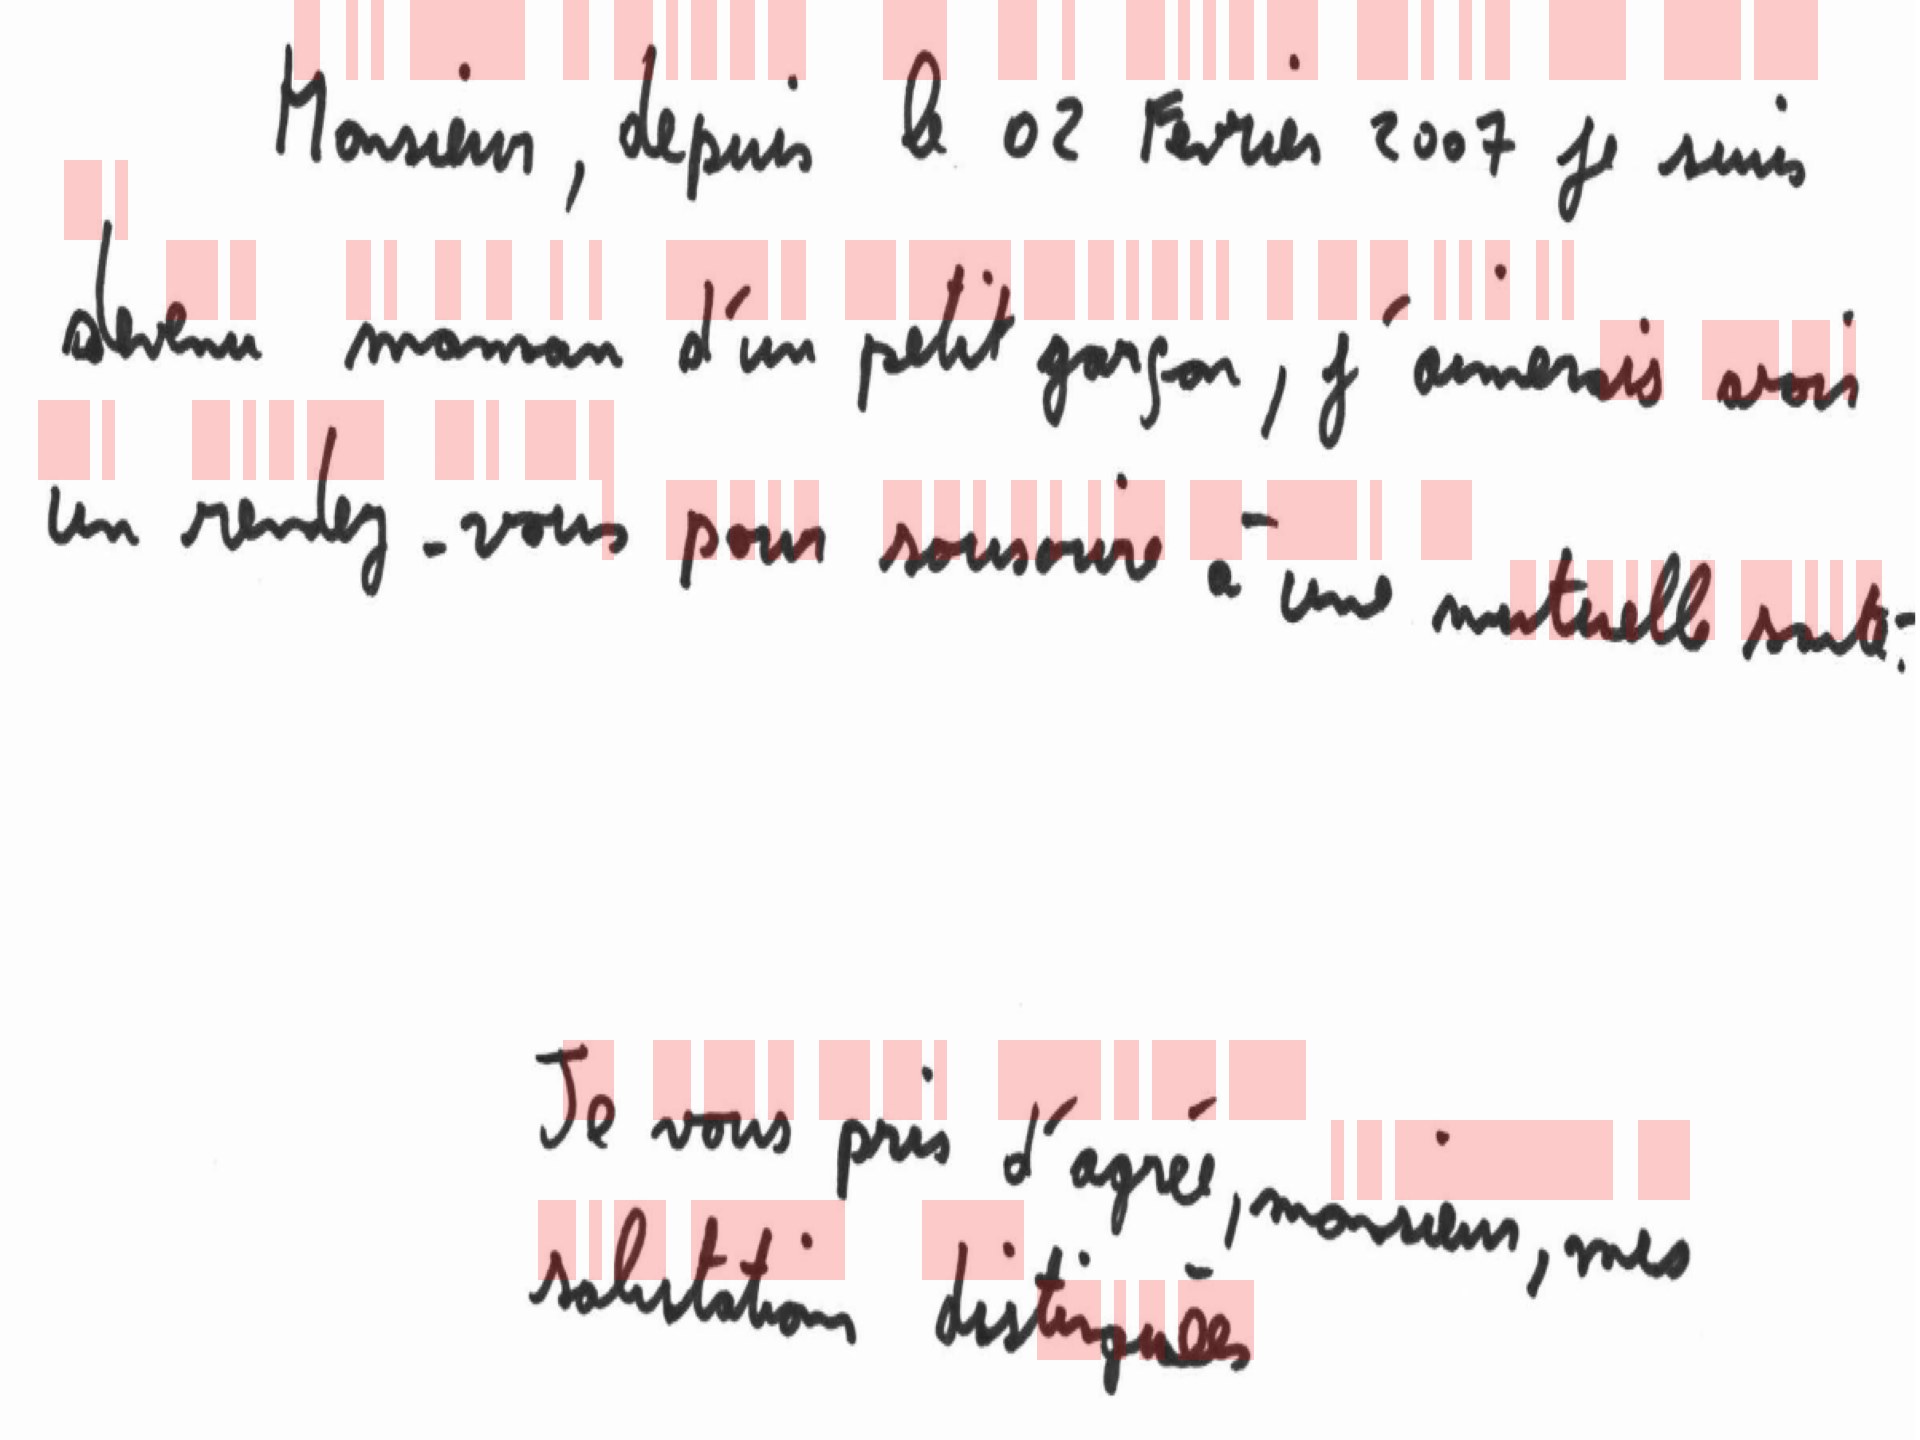 Monsieur, depuis le 02 Février 2007 je suis
devenu maman d'un petit garçon, j'aimerais avoir
un rendez-vous pour souscrire à une mutuelle santé.
Je vous pris d'agréé, monsieur, mes
salutations distinguées